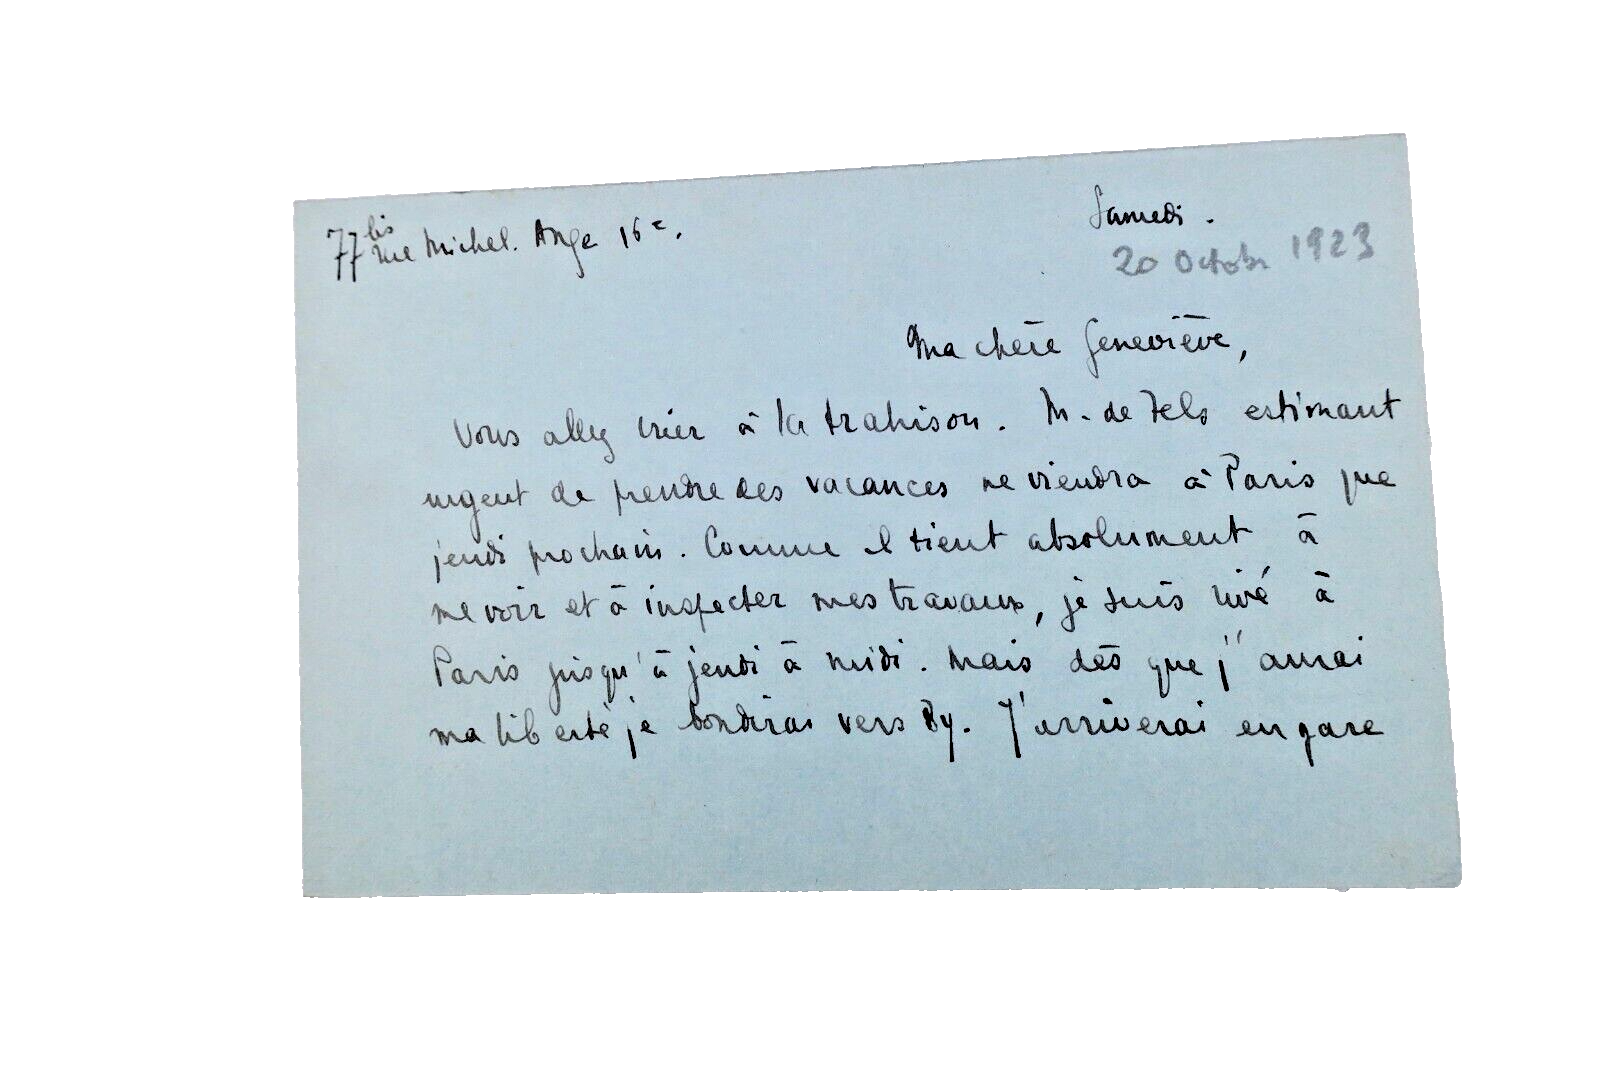 77 bis rue Michel. Ange 16e.
Samedi.
20 Octobre 1923
Ma chère Geneviève,
Vous allez crier à la trahison. M. de Fels estimant
urgent de prendre des vacances ne viendra à Paris que
jeudi prochain. Comme il tient absolument à
me voir et à inspecter mes travaux, je suis rivé à
Paris jusqu'à jeudi à midi. Mais dès que j'aurai
ma liberté je bondirai vers By. J'arriverai en gare